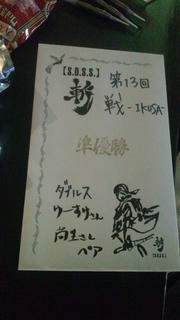 【S.O.S.S.】
斬
第13回
戦-IKUSA-
準優勝
ダブルス
りーすけさん
尚生さん
ペア
斬